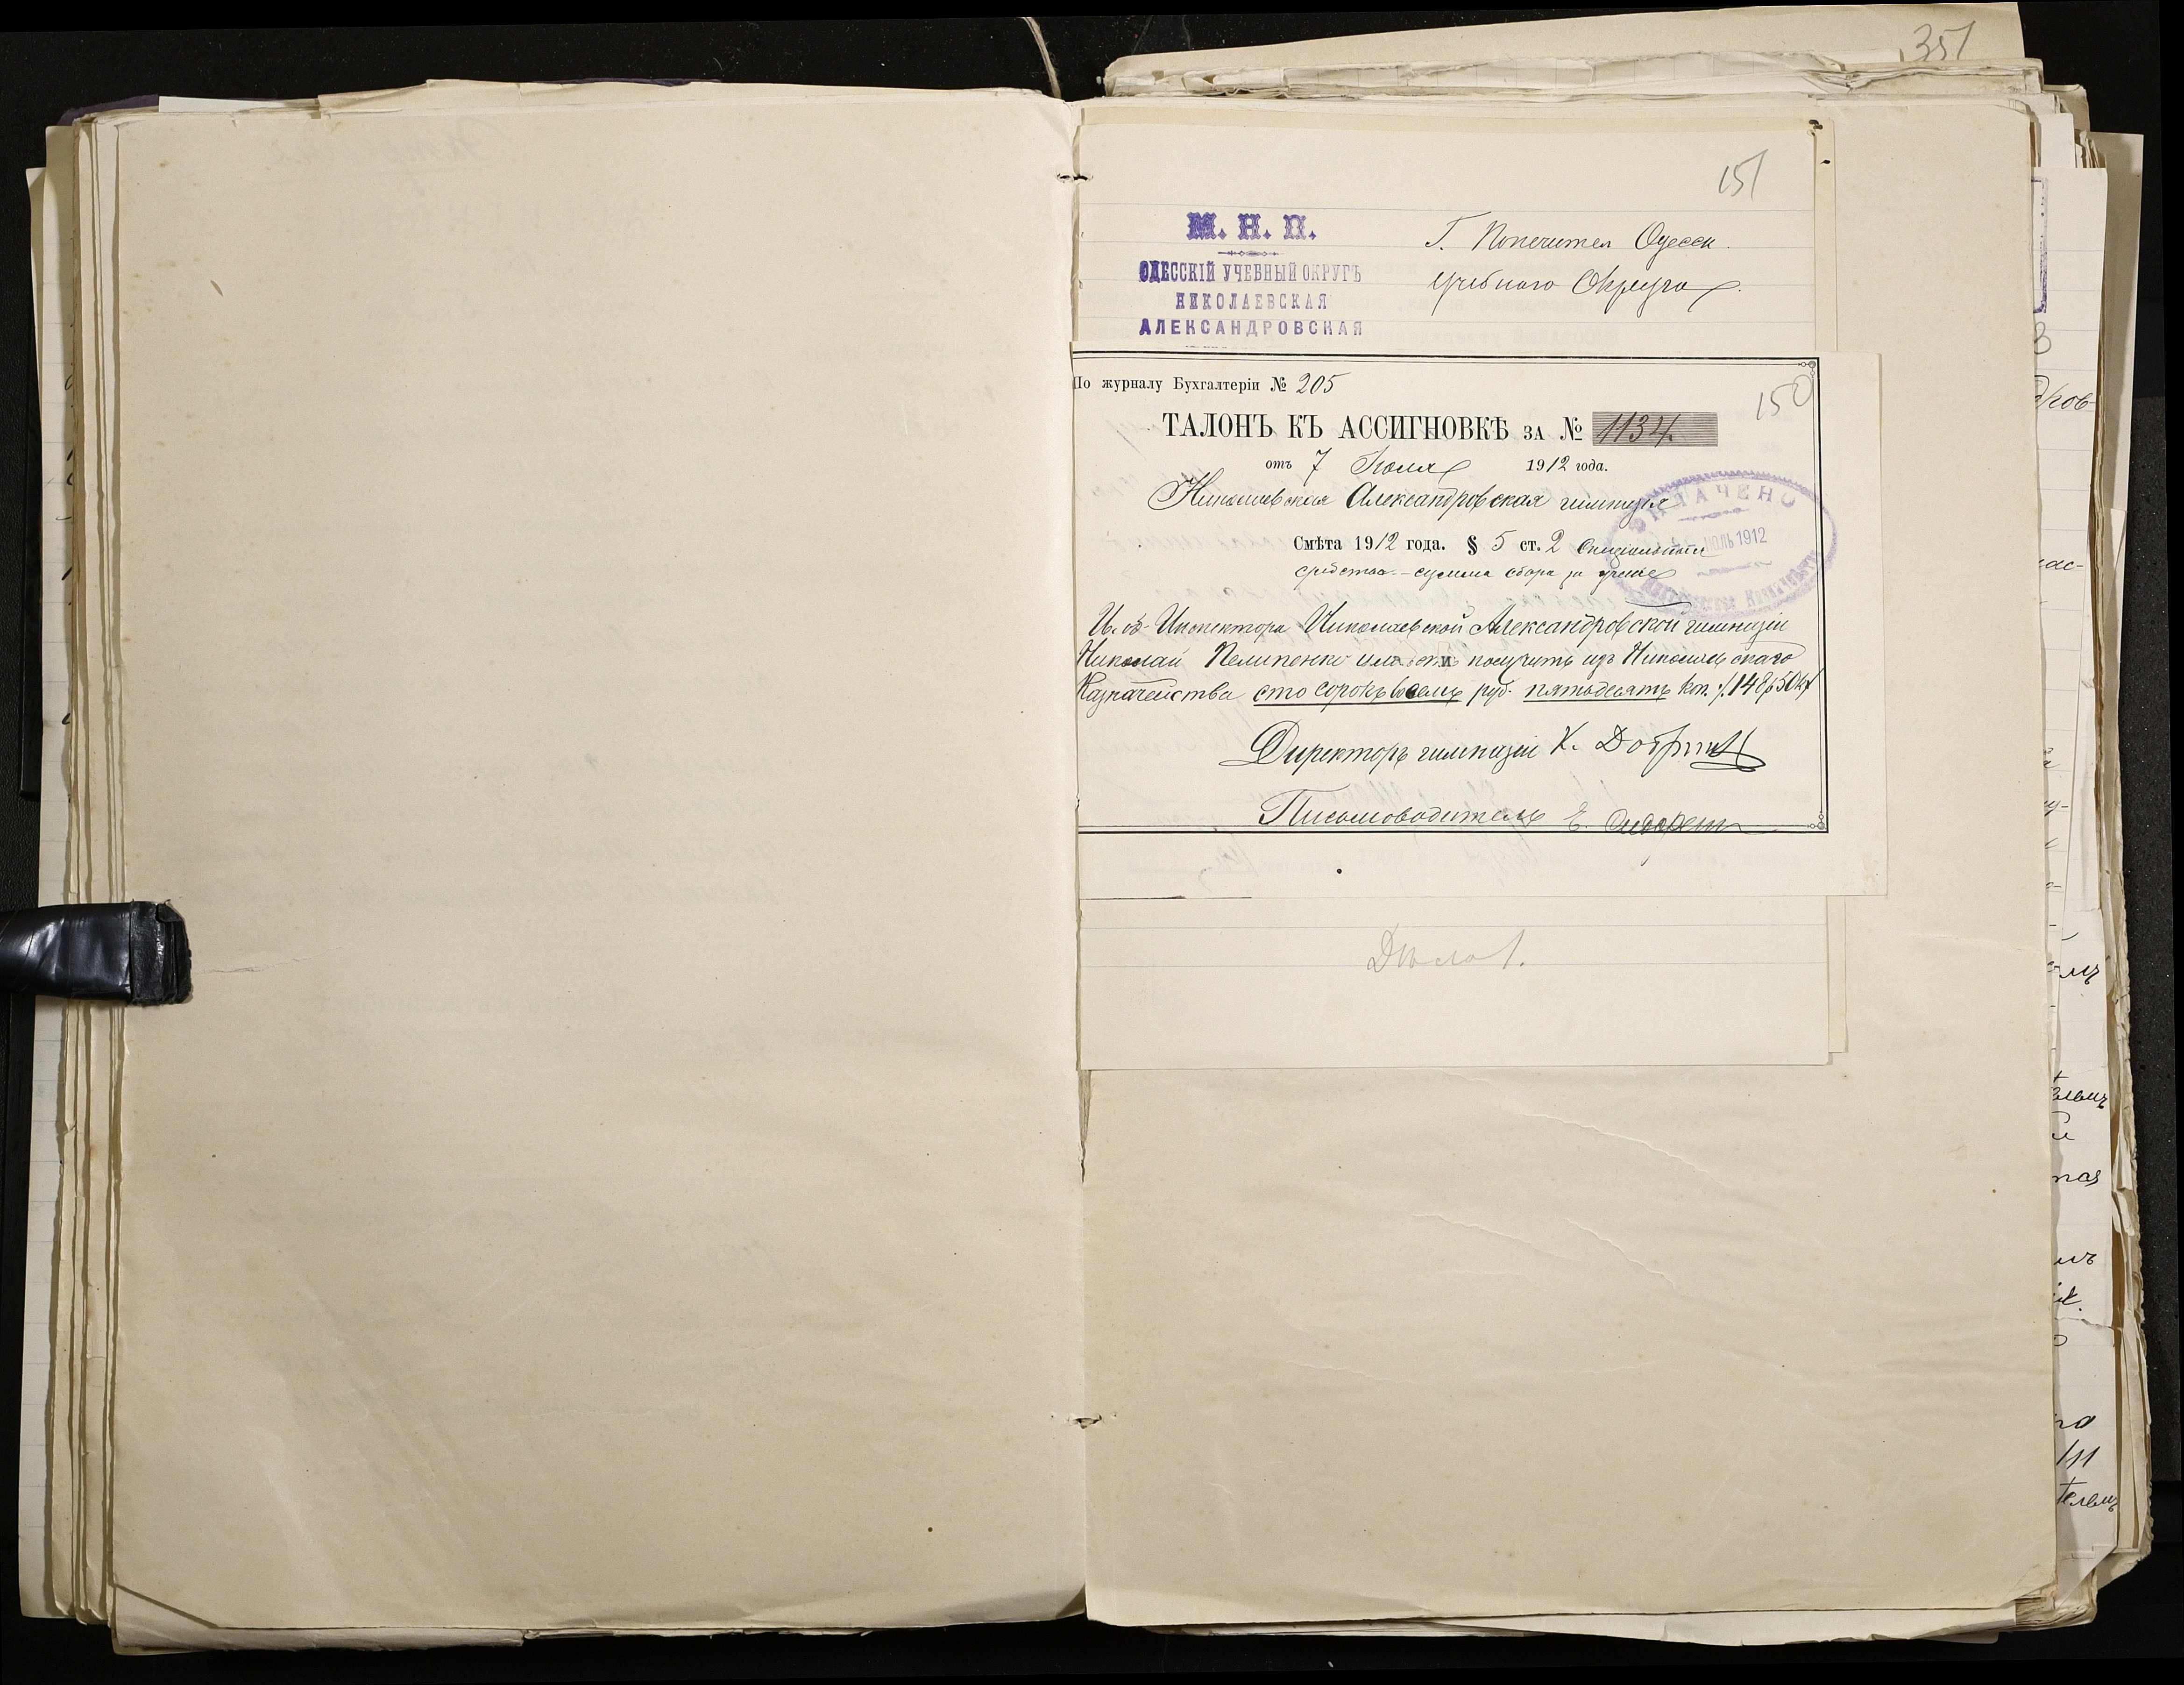 351
151
М. Н. П.
ОДЕССКІЙ УЧЕБНЫЙ ОКРУГЪ
НИКОЛАЕВСКАЯ
АЛЕКСАНДРОВСКАЯ
Г. Попечител Одесск.
Учебнаго Округа.
По журналу Бухгалтеріи № 205
150
ТАЛОНЪ КЪ АССИГНОВКѢ ЗА № 1134.
отъ 7 Іюля 1912 года.
Николаевская Александровская гимназія
Смѣта 1912 года. § 5 ст. 2 Спеціальныя
средства - сумма сбора за ученіе
ОПЛАЧЕНО
ІЮЛЬ 1912
И. об. Инспектора Николаевской Александровской гимназіи
Николай Пелипенко имѣетъ получить изъ Николаевскаго
Казначейства сто сорокъ восемь руб. пятьдесятъ коп. /148 р 50 к/
Директоръ гимназіи К.
Письмоводитель Е.
Дѣло 1.